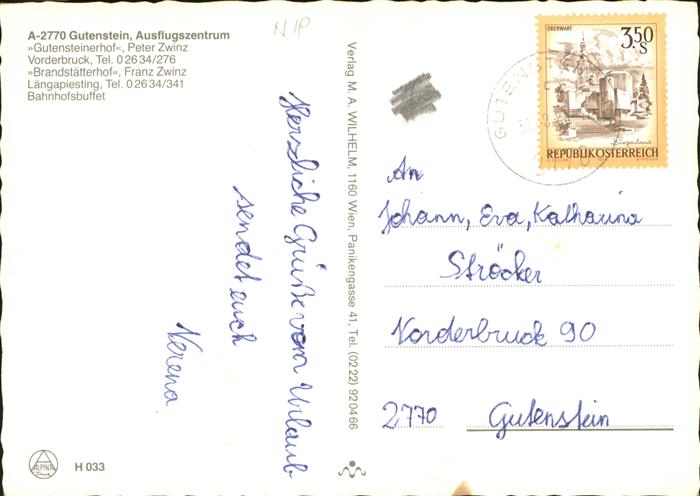 A-2770 Gutenstein, Ausflugszentrum
»Gutensteinerhof«, Peter Zwinz
Vorderbruck, Tel. 0 26 34/276
»Brandstätterhof«, Franz Zwinz
Längapiesting, Tel. 0 26 34/341
Bahnhofsbuffet
Herzliche Grüße vom Urlaub
sendet euch
Verena
ALPINA
H 033
Verlag M. A. WILHELM, 1160 Wien, Panikengasse 41, Tel. (02 22) 92 04 66
OBERWART
3.50
S
REPUBLIK ÖSTERREICH
GUTENSTEIN
2770
An
Johann, Eva, Katharina
Ströcker
Vorderbruck 90
2770 Gutenstein